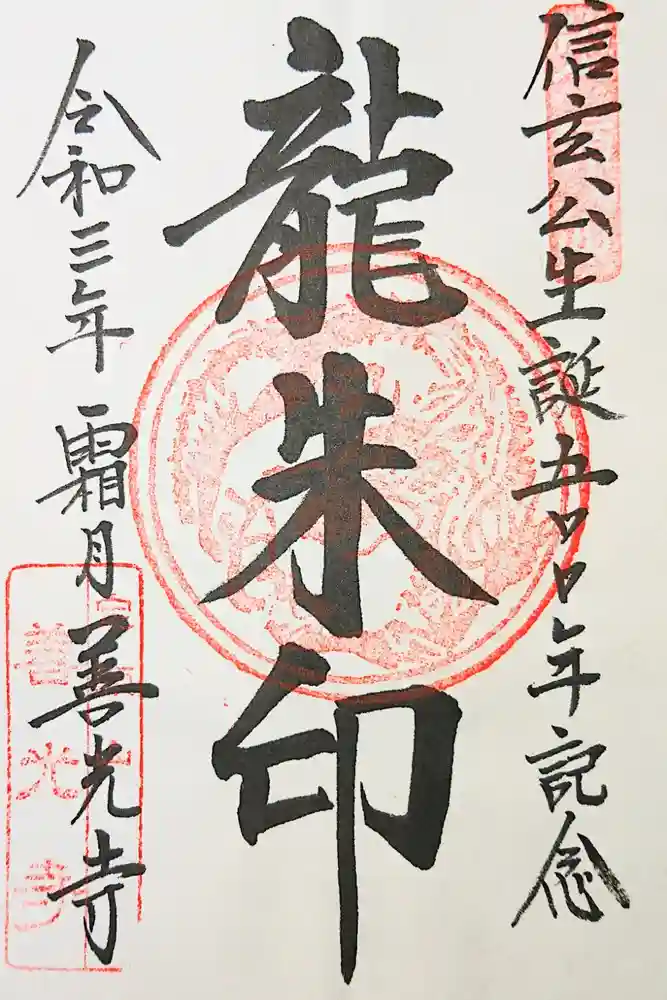 信玄公生誕五〇〇年記念
龍朱印
令和三年 霜月 善光寺
善光寺